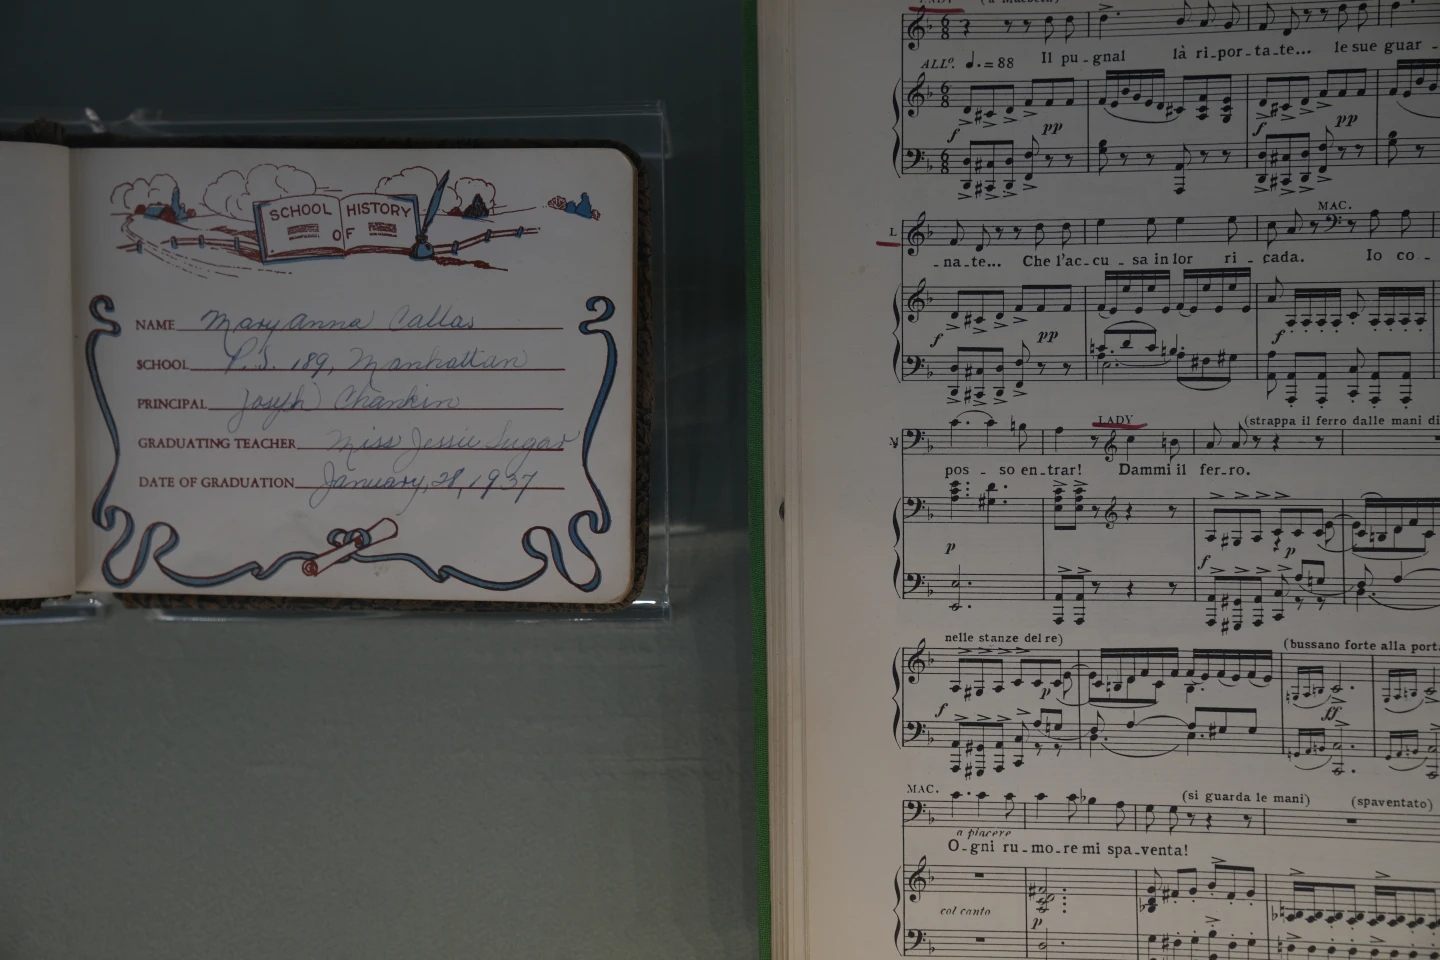 SCHOOL HISTORY
OF
NAME Mary Anna Callas
SCHOOL P.S. 189, Manhattan
PRINCIPAL Joseph Chankin
GRADUATING TEACHER Miss Jessie Sugar
DATE OF GRADUATION January, 28, 1937
LADY (a Macbeth)
ALLº. ♩. = 88
Il pu - gnal là ri - por - ta - te... le sue guar -
f pp f pp
MAC.
L
- na - te... Che l'ac - cu - sa in lor ri - cada. Io co -
f pp f
LADY (strappa il ferro dalle mani di
pos - so en - trar! Dammi il fer - ro.
p f p
nelle stanze del re) (bussano forte alla port
f p ff
MAC. (si guarda le mani) (spaventato)
a piacere
O - gni ru - mo - re mi spa - venta!
col canto p